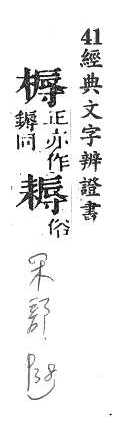 41經典文字辨證書
槈正亦作
鎒同
耨俗
部